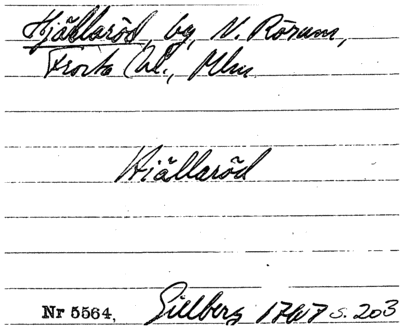 Hjällaröd, by, N. Rörum,
Frosta hd., Mlm
Hiällaröd
Nr 5564, Gillberg 1767 s. 203